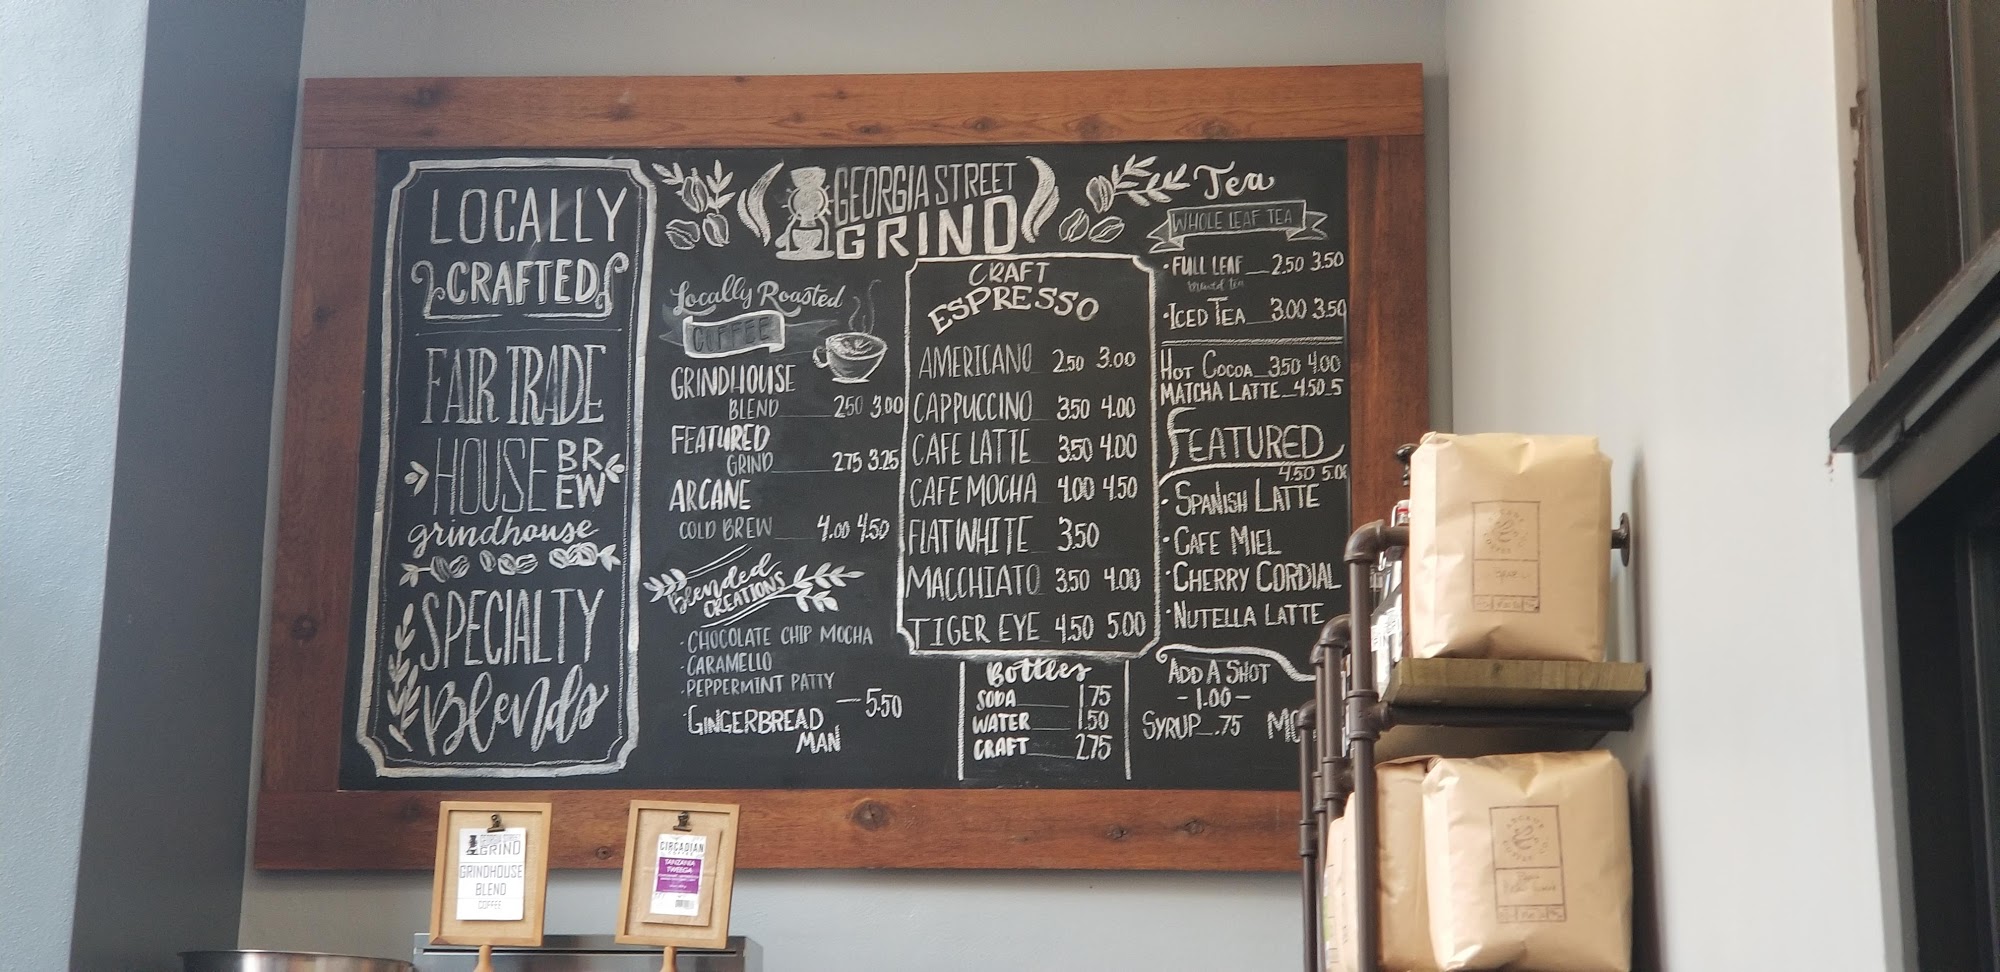 LOCALLY
CRAFTED
FAIR TRADE
HOUSE BREW
grindhouse
SPECIALTY
Blends
GEORGIA STREET
GRIND
Locally Roasted
COFFEE
GRINDHOUSE
BLEND 2.50 3.00
FEATURED
GRIND 2.75 3.25
ARCANE
COLD BREW 4.00 4.50
Blended
CREATIONS
· CHOCOLATE CHIP MOCHA
· CARAMELLO
· PEPPERMINT PATTY
— 5.50
· GINGERBREAD
MAN
CRAFT
ESPRESSO
AMERICANO 2.50 3.00
CAPPUCCINO 3.50 4.00
CAFE LATTE 3.50 4.00
CAFE MOCHA 4.00 4.50
FLAT WHITE 3.50
MACCHIATO 3.50 4.00
TIGER EYE 4.50 5.00
Bottles
SODA 1.75
WATER 1.50
CRAFT 2.75
Tea
WHOLE LEAF TEA
· FULL LEAF 2.50 3.50
brewed tea
· ICED TEA 3.00 3.50
HOT COCOA 3.50 4.00
MATCHA LATTE 4.50 5
FEATURED
4.50 5.00
· SPANISH LATTE
· CAFE MIEL
· CHERRY CORDIAL
· NUTELLA LATTE
ADD A SHOT
- 1.00 -
SYRUP .75
GEORGIA STREET
GRIND
GRINDHOUSE
BLEND
COFFEE
CIRCADIAN
TANZANIA
TWEEGA